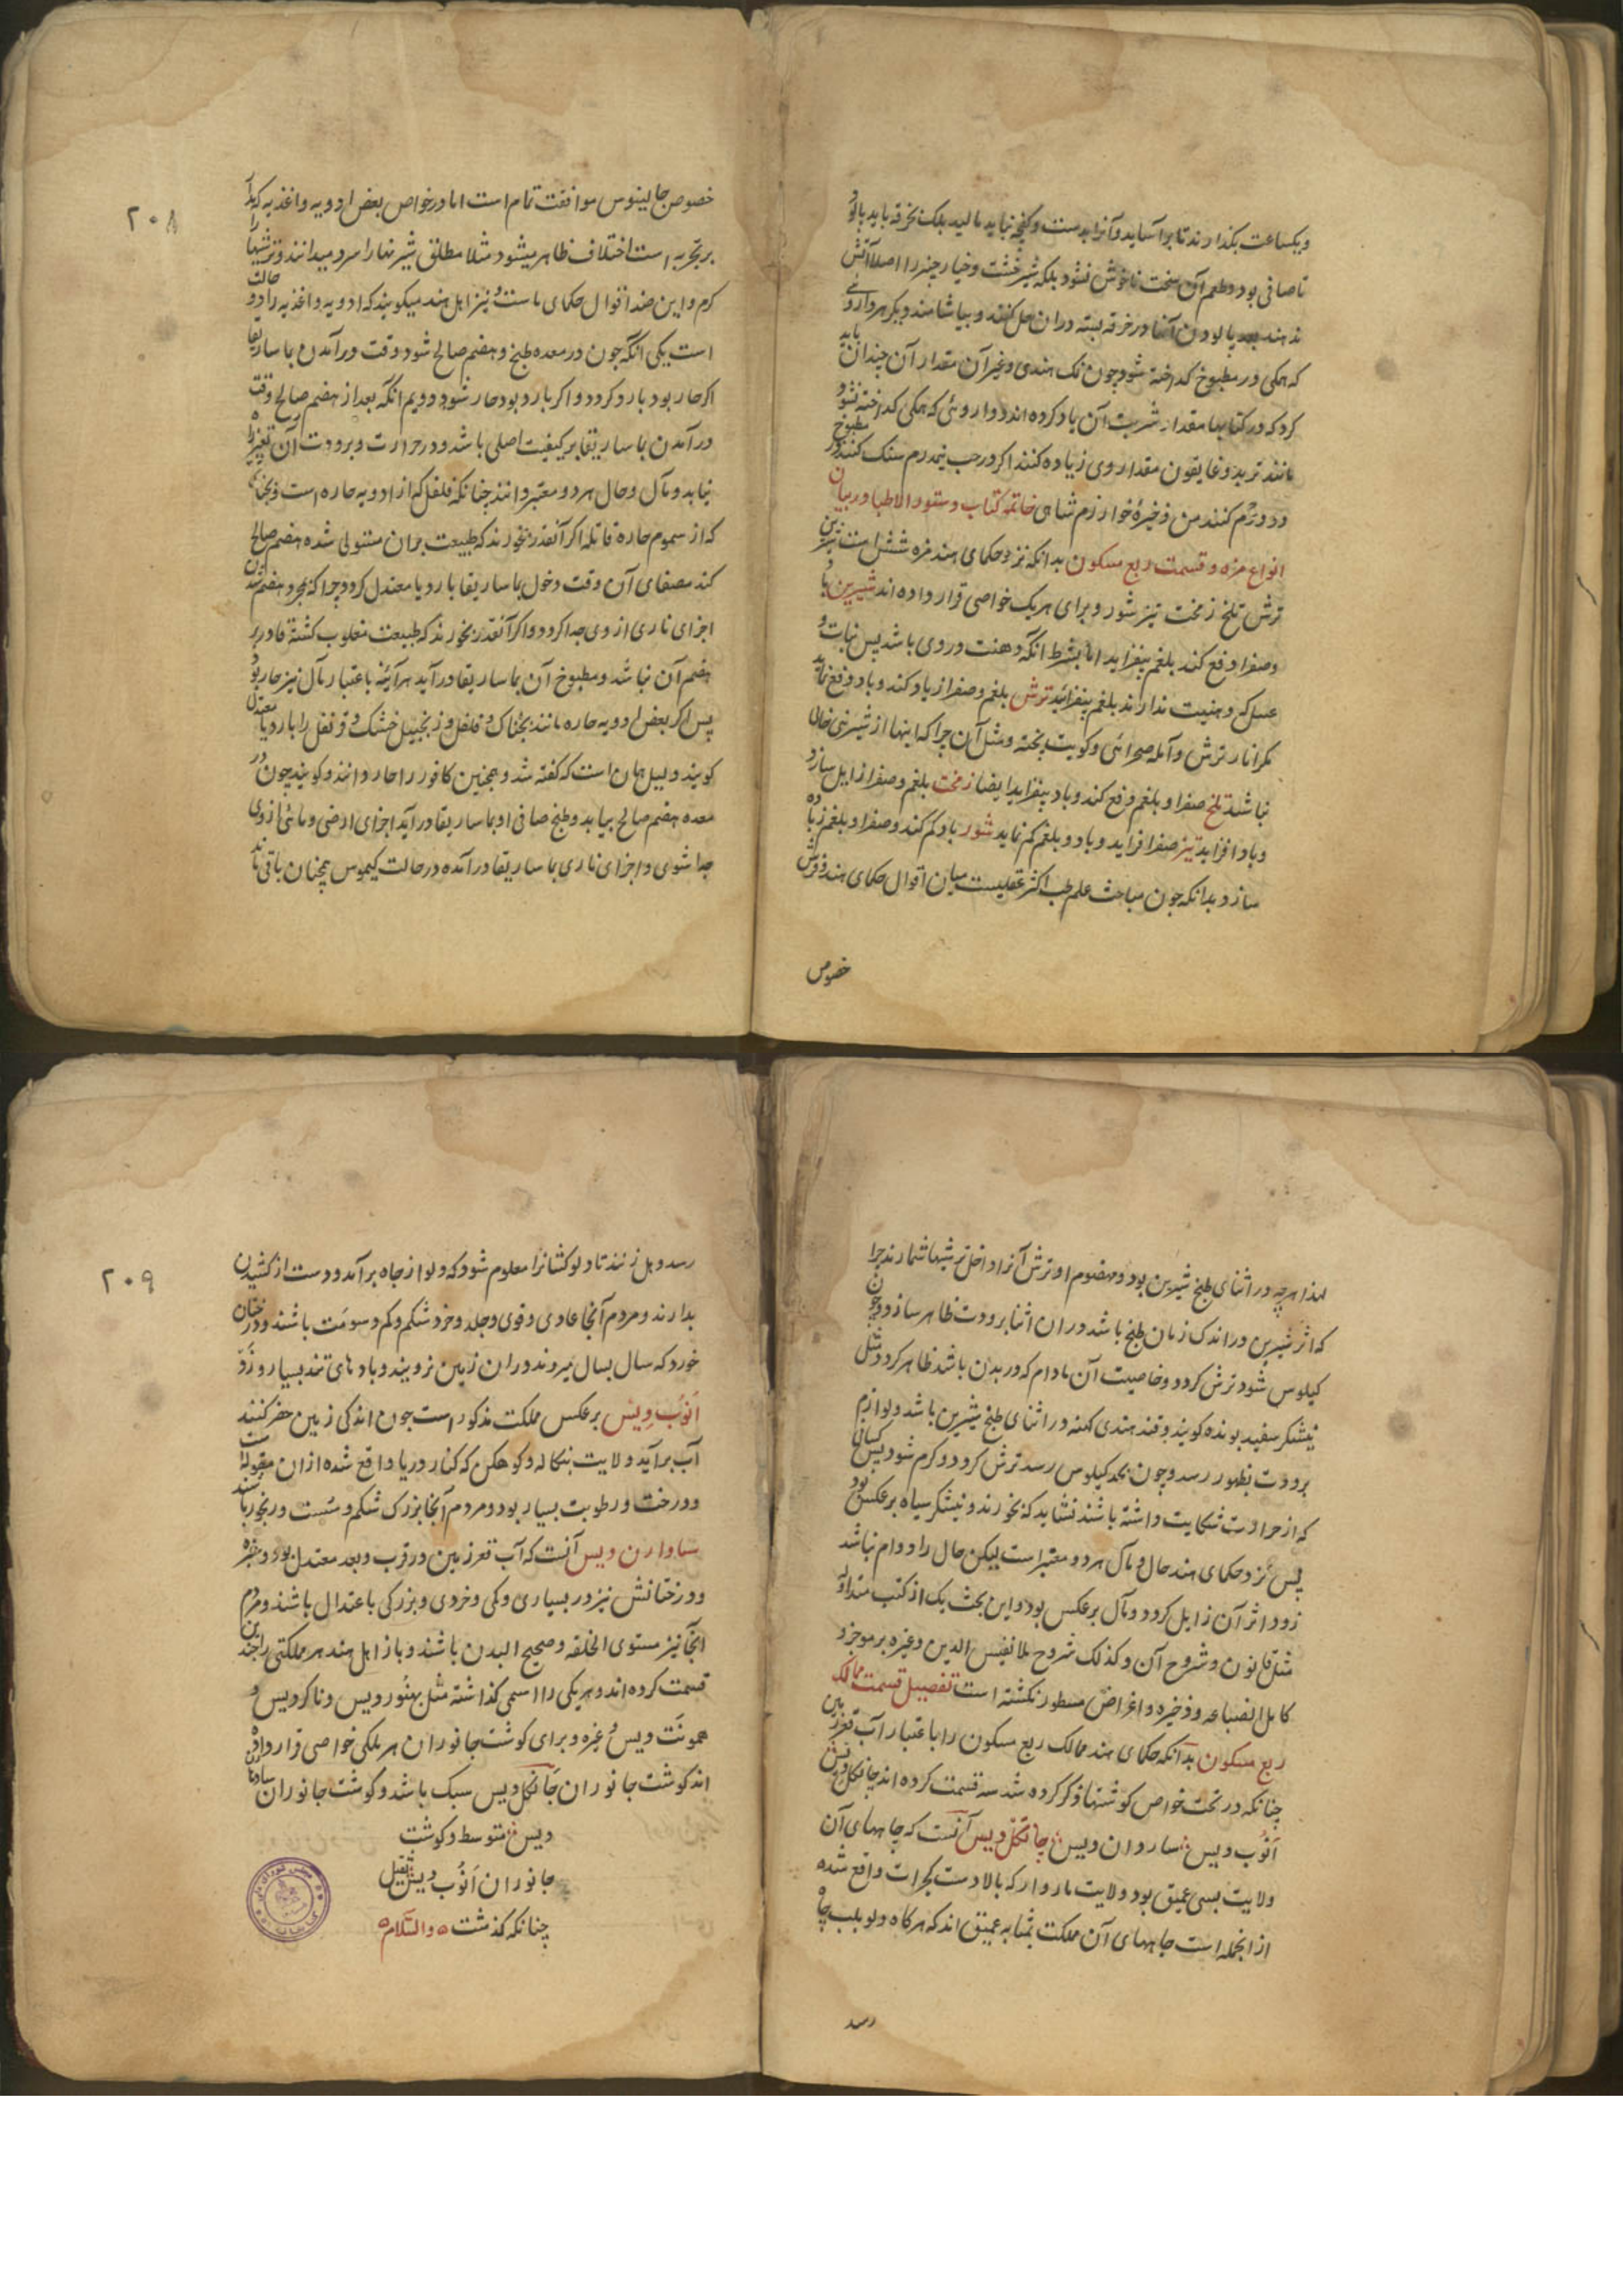 ویکساعت بکذارند تا برآساید و آنرا بدست و کفچه نباید مالید بلکه بخرقه باید پالود
تا صافی بود و طعم آن سخت ناخوش نشود بلکه شیرخشت و خیارچنبر را اصلا آتش
ندهند پالودن آنها در خرقه بسته دران حل کنند و بیاشامند و دیکر هر داروئی
که همکی در مطبوخ کداخته شود چون نمک هندی و غیر آن مقدار آن چندان باید
کرد که در کتابها مقدار شربت آن یاد کرده اند و داروئی که همکی کداخته نشود
مانند تربد و غاریقون مقدار وی زیاده کنند اکر در حب نیمدرم سنک کنند در مطبوخ
دو درم کنند من ذخیرهٔ خوارزم شاهی خاتمه کتاب دستور الاطبا در بیان
انواع مزه و قسمت ربع مسکون بدانکه نزد حکمای هند مزه شش است شیرین
ترش تلخ زمخت تیز شور و برای هریک خواصی قرار داده اند شیرین باد
و صفرا دفع کند بلغم بیفزاید اما بشرط آنکه دهنت در وی باشد پس نبات و
عسل که دهنیت ندارند بلغم بیفزاید ترش بلغم و صفرا زیاد کند و باد دفع نماید
مکر انار ترش و آمله صحرائی و کویت پخته و مثل آن چرا که اینها از شیرینی خالی
نباشد تلخ صفرا و بلغم دفع کند و باد بیفزاید ایضا زمخت بلغم و صفرا زایل سازد
و باد افزاید تیز صفرا افزاید و باد و بلغم کم نماید شور باد کم کند و صفرا و بلغم زیاده
سازد بدانکه چون مباحث علم طب اکثر عقلیست میان اقوال حکمای هند و فرس
خصوص
۲۰۸
خصوص جالینوس موافقت تمام است اما در خواص بعض ادویه و اغذیه که بنا
بر تجربه است اختلاف ظاهر میشود مثلا مطلق شیرینها را سرد میدانند و ترشیها را
کرم و این ضد اقوال حکمای ماست و نیز اهل هند میکویند که ادویه و اغذیه را دو حالت
است یکی آنکه چون در معده طبخ و هضم صالح شود وقت درآمدن بماساریقا
اکر حار بود بارد کردد و اکر بارد بود حار شود دویم آنکه بعد از هضم صالح وقت
درآمدن بماساریقا بر کیفیت اصلی باشد و در حرارت و برودت آن تغییر راه
نیابد و مآل و حال هر دو معتبر دانند چنانکه فلفل که از ادویه حاره است و بچناک
که از سموم حاره قاتله اکر آنقدر بخورند که طبیعت بران مستولی شده هضم صالح
کند مصفای آن وقت دخول بماساریقا بارد یا معتدل کردد چرا که بمجرد هضم شدن
اجزای ناری از وی جدا کردد و اکر آنقدر بخورند که طبیعت مغلوب کشته قادر بر
هضم آن نباشد و مطبوخ آن بماساریقا درآید هرآئینه باعتبار مآل نیز حار بود
پس اکر بعض ادویه حاره مانند بچناک و فلفل و زنجبیل خشک و قرنفل را بارد یا معتدل
کویند دلیل همان است که کفته شد و همچنین کافور را حار دانند و کویند چون در
معده هضم صالح بیابد و طبخ صافی او بماساریقا درآید اجزای ارضی و مائی از وی
جدا شوی و اجزای ناری بماساریقا درآمده در حالت کیموس همچنان باقی ماند
لهذا هرچه در اثنای طبخ شیرین بود و مهضوم او ترش آنرا داخل ترشیها شمارند چرا
که اثر شیرین در اندک زمان طبخ باشد دران اثنا برودت ظاهر سازد و چون
کیلوس شود ترش کردد و خاصیت آن مادام که در بدن باشد ظاهر کردد مثل
نیشکر سفید بونده کویند و قند هندی کهنه در اثنای طبخ شیرین باشد و لوازم
برودت بظهور رسد و چون بحد کیلوس رسد ترش کردد و کرم شود پس کسانی
که از حرارت شکایت داشته باشند نشاید که بخورند و نیشکر سیاه برعکس بود
پس نزد حکمای هند حال و مآل هر دو معتبر است لیکن حال را دوام نباشد
زود اثر آن زایل کردد و مآل برعکس بود و این بحث یک از کتب متداوله
مثل قانون و شروح آن و کذلک شروح ملا نفیس الدین وغیره بر موجز و
کامل الصناعه و ذخیره و اغراض مسطور نکشته است تفصیل قسمت ممالک
ربع مسکون بدانکه حکمای هند ممالک ربع مسکون را باعتبار آب قعر زمین
چنانکه در تحت خواص کوشتها ذکر کرده شد سه قسمت کرده اند جانکل دیس
انوب دیس ساروان دیس جانکل دیس آنست که چاههای آن
ولایت بسی عمیق بود ولایت ماروار که بالادست کجرات واقع شده
از انجمله است چاههای آن مملکت بمثابه عمیق اند که هرکاه دلو بلب چاه
رسد
۲۰۹
رسد دهل زنند تا دلوکشانرا معلوم شود که دلو از چاه برآمد و دست از کشیدن
بدارند و مردم آنجا عادی و قوی و جلد و خرد شکم و کم دسومت باشند و درختان
خورد که سال بسال میروند دران زمین نرویند و بادهای تند بسیار وزد
انوب دیس برعکس مملکت مذکور است چون اندکی زمین حفر کنند
آب برآید ولایت بنکاله و کوهکن که کنار دریا واقع شده ازان مقوله است
و درخت و رطوبت بسیار بود و مردم آنجا بزرک شکم و سست و رنجور باشند
ساوارن دیس آنست که آب قعر زمین در قرب و بعد معتدل بود و سبزه
و درختانش نیز در بسیاری و کمی و خردی و بزرکی باعتدال باشند و مردم
آنجا نیز مستوی الخلقه و صحیح البدن باشند و باز اهل هند هر مملکتی را چندین
قسمت کرده اند و هریکی را اسمی کذاشته مثل بهنور دیس و ناکر دیس و
همونت دیس وغیره و برای کوشت جانوران هر ملکی خواصی قرار داده
اند کوشت جانوران جانکل دیس سبک باشد و کوشت جانوران ساوارن
دیس متوسط و کوشت
جانوران انوب دیس ثقیل
چنانکه کذشت والسلام